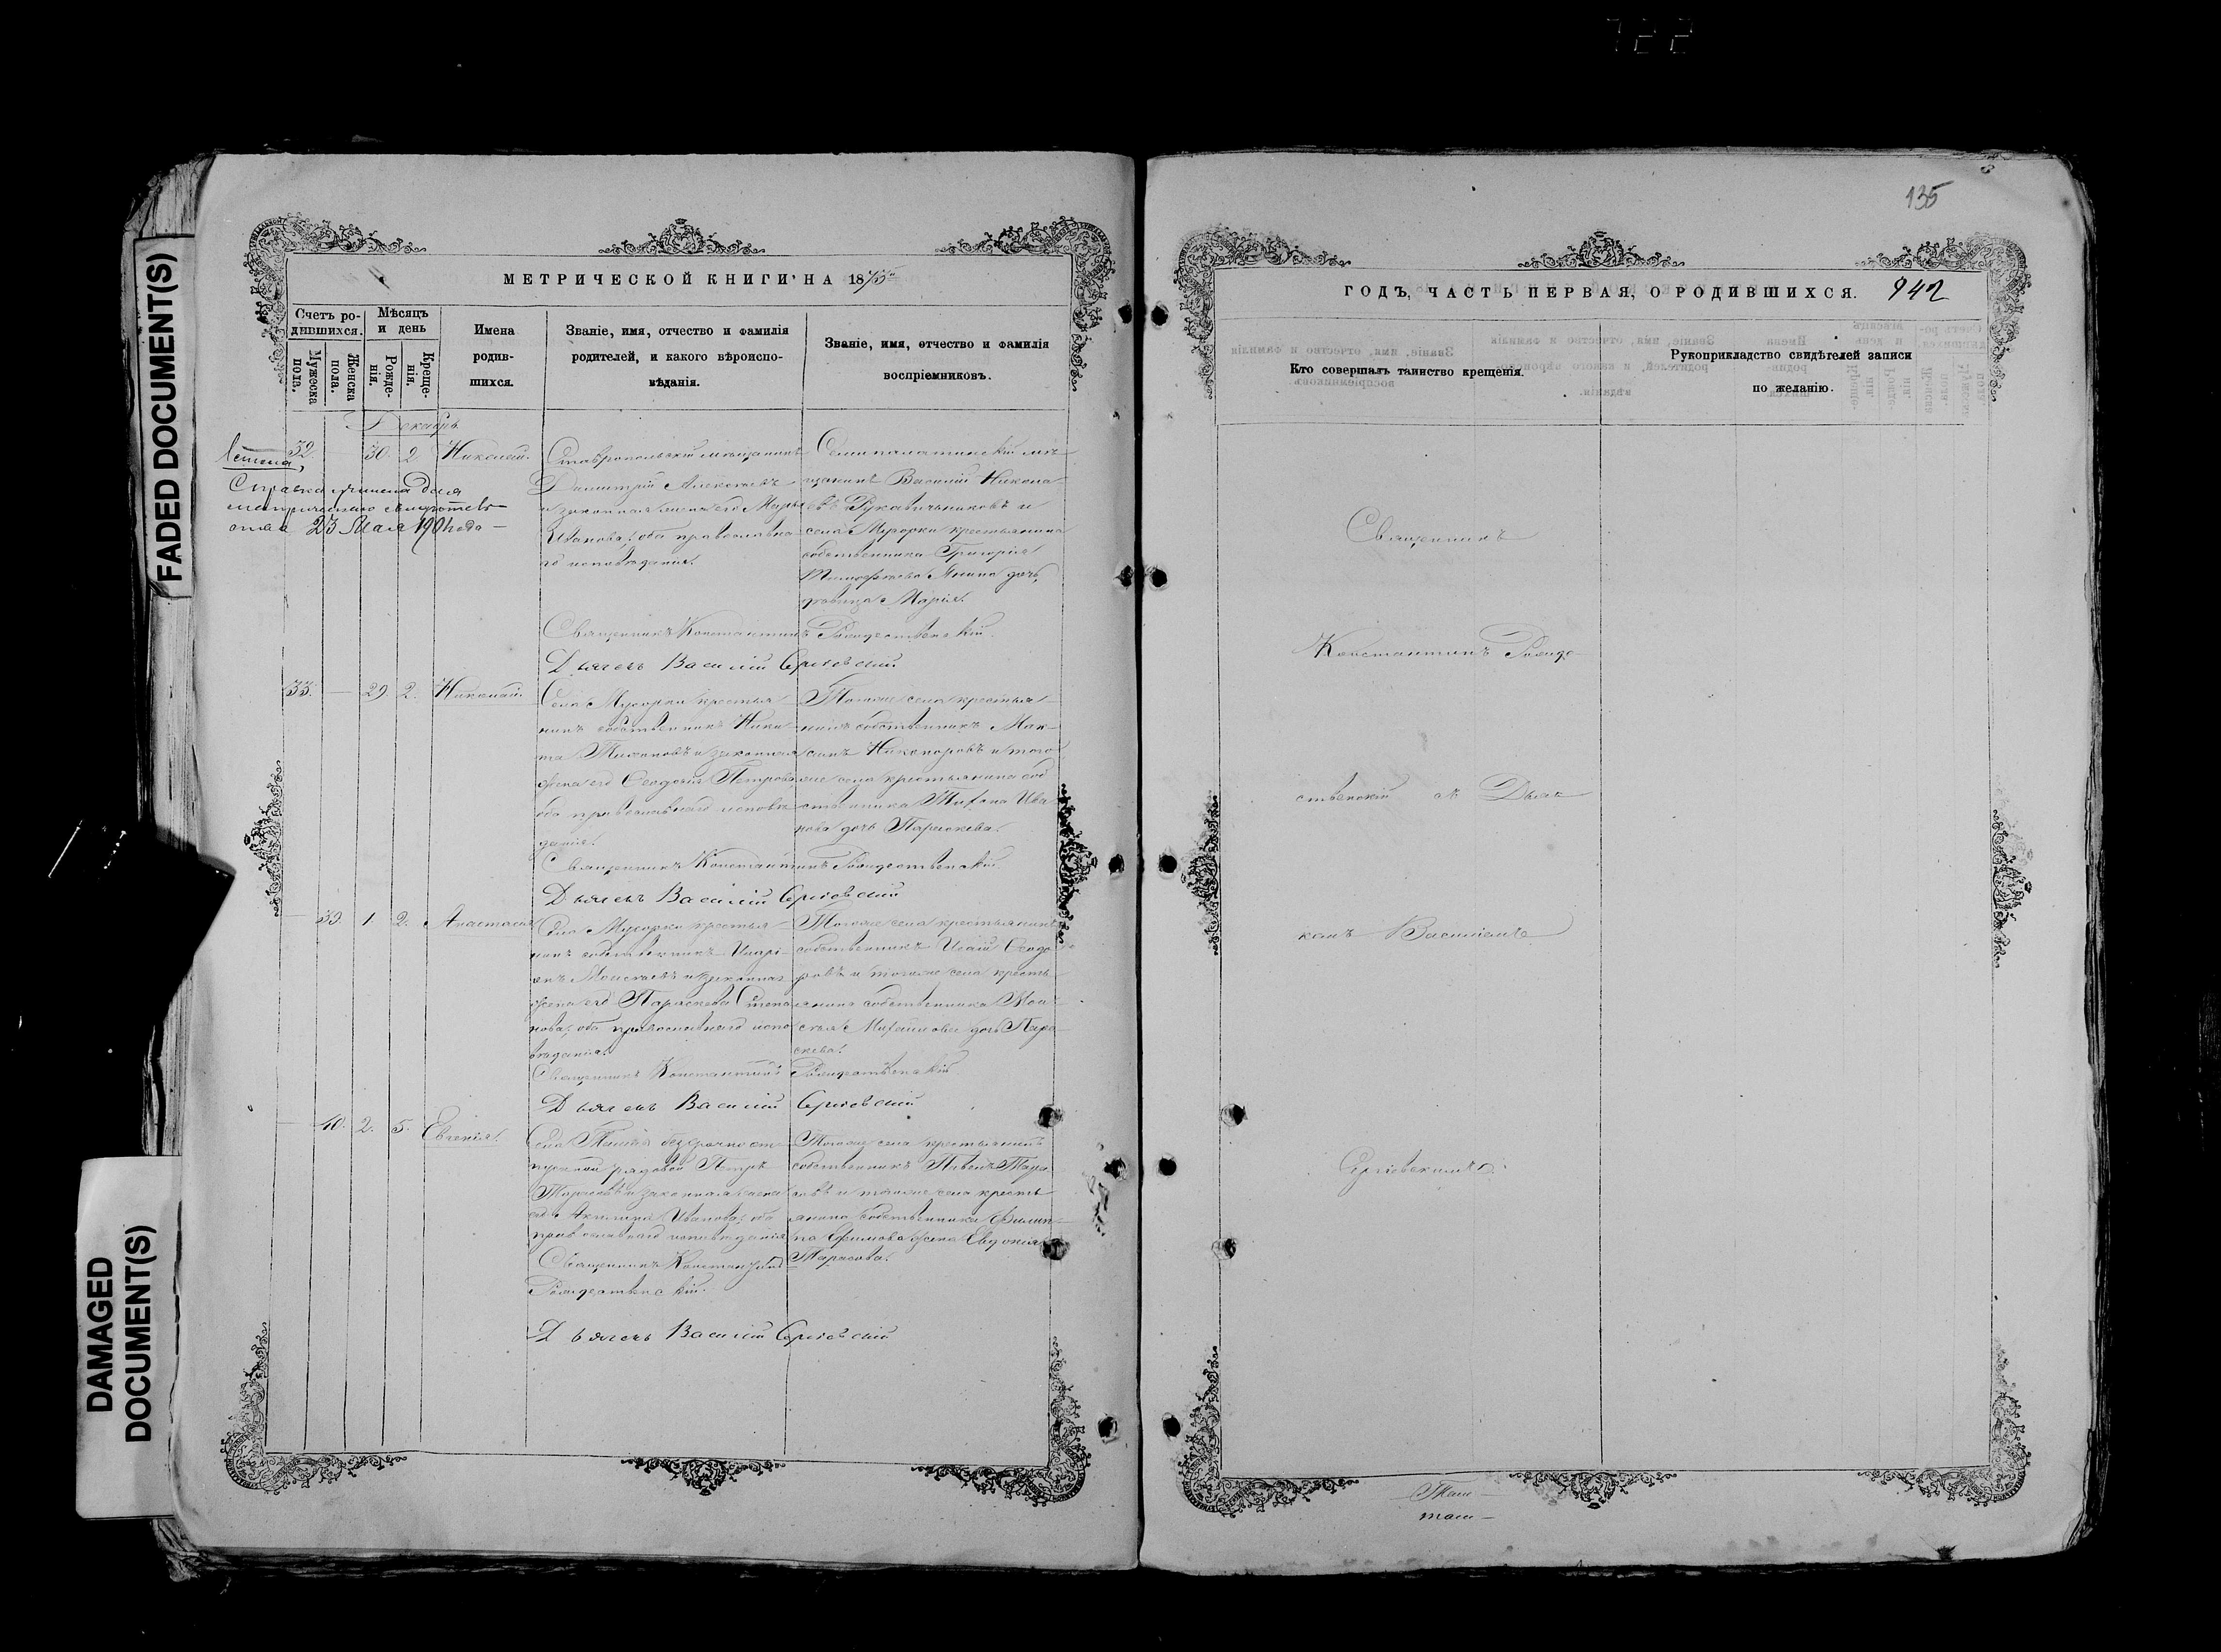 722
FADED DOCUMENT(S)
DAMAGED
DOCUMENT(S)
МЕТРИЧЕСКОЙ КНИГИ НА 18
Счетъ ро-
дившихся.
Мужеска
пола.
Женска
пола.
Мѣсяцъ
и день
Рожде-
нія.
Креще-
нія.
Имена
родив-
шихся.
Званіе, имя, отчество и фамилія
родителей, и какого вѣроиспо-
вѣданія.
Званіе, имя, отчество и фамилія
воспріемниковъ.
Декабрь
Справка учинена для
метрическаго свидѣтель-
ства 23 Мая 190 года
32. — 30. 2. Николай.
Ставропольскій мѣщанинъ
Димитрій Алексѣевъ
и законная жена его Марья
Иванова, оба православна-
го исповѣданія.
Семипалатинскій мѣ-
щанинъ Василій Никола-
евъ Рукавичниковъ и
села Мусорки крестьянина
собственника Григорія
Тимофѣева дочь
дѣвица Марія.
Священникъ Константинъ Рождественскій.
Дьячекъ Василій Сергіевскій
33. — 29. 2. Николай.
Села Мусорки крестья-
нинъ собственникъ Ники-
та Тихоновъ и законная
жена его Ѳеодосія Петрова,
оба православнаго исповѣ-
данія.
Тогоже села крестья-
нинъ собственникъ Мак-
симъ Никаноровъ и того
же села крестьянина соб
ственника Тихона Ива
нова дочь Параскева.
Священникъ Константинъ Рождественскій.
Дьячекъ Василій Сергіевскій
— 39. 1. 2. Анастасія
Села Мусорки крестья-
нинъ собственникъ Иларі-
онъ Моисеевъ и законная
жена его Параскева Степа
нова, оба православнаго испо
вѣданія.
Тогоже села крестьянинъ
собственникъ Исаій Ѳеодо
ровъ и тогоже села кресть
янина собственника Мои
сея Михайлова дочь Пара-
скева.
Священникъ Константинъ Рождественскій.
Дьячекъ Василій Сергіевскій
— 40. 2. 5. Евгенія.
Села безсрочно от-
пускной рядовой Петръ
Тарасовъ и законная жена
его Акилина Иванова, оба
православнаго исповѣданія
Тогоже села крестьянинъ
собственникъ Павелъ Тара
совъ и тогоже села кресть
янина собственника Филип-
па Ефимова жена Евдокія
Тарасова.
Священникъ Константинъ
Рождественскій.
Дьячекъ Василій Сергіевскій
135
ГОДЪ, ЧАСТЬ ПЕРВАЯ, О РОДИВШИХСЯ. 942
Кто совершалъ таинство крещенія.
Рукоприкладство свидѣтелей записи
по желанію.
Священникъ
Константинъ Рожде-
ственскій съ Дьяч-
комъ Василіемъ
Сергіевскимъ.